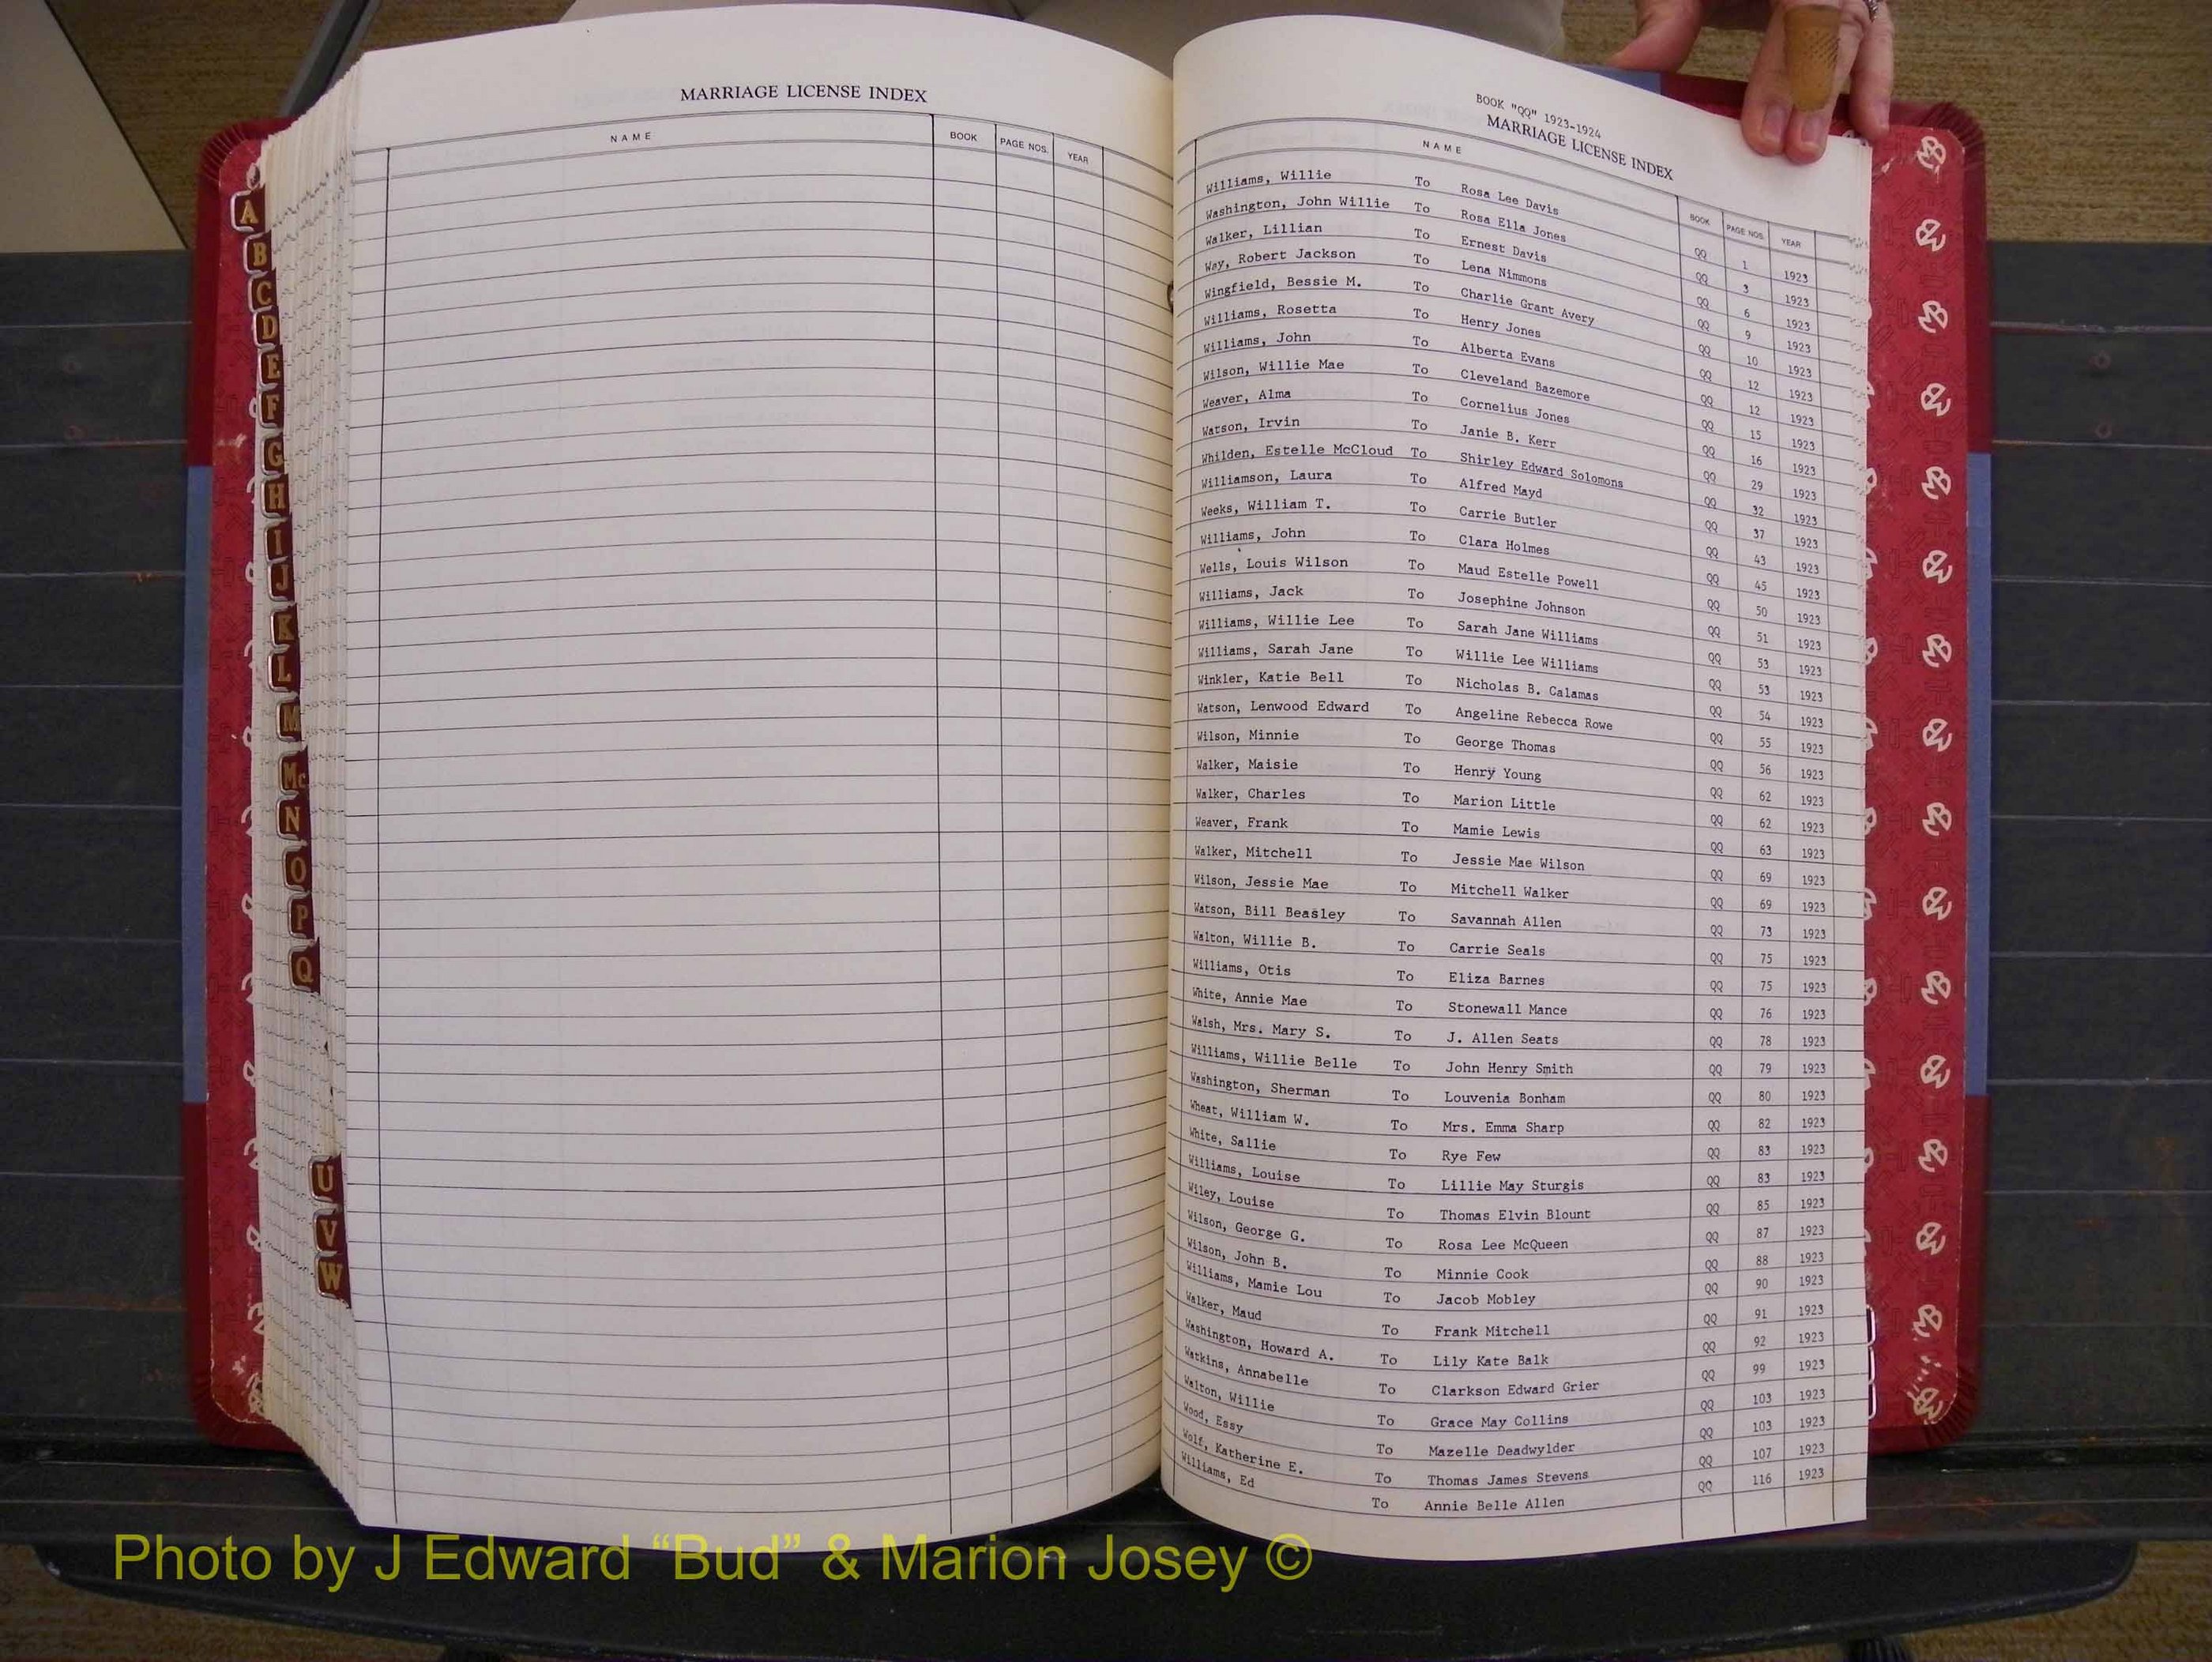 MARRIAGE LICENSE INDEX
NAME BOOK PAGE NOS. YEAR
BOOK "QQ" 1923-1924
MARRIAGE LICENSE INDEX
NAME BOOK PAGE NOS. YEAR
Williams, Willie To Rosa Lee Davis QQ 1 1923
Washington, John Willie To Rosa Ella Jones QQ 3 1923
Walker, Lillian To Ernest Davis QQ 6 1923
Way, Robert Jackson To Lena Nimmons QQ 9 1923
Wingfield, Bessie M. To Charlie Grant Avery QQ 10 1923
Williams, Rosetta To Henry Jones QQ 12 1923
Williams, John To Alberta Evans QQ 12 1923
Wilson, Willie Mae To Cleveland Bazemore QQ 15 1923
Weaver, Alma To Cornelius Jones QQ 16 1923
Watson, Irvin To Janie B. Kerr QQ 29 1923
Whilden, Estelle McCloud To Shirley Edward Solomons QQ 32 1923
Williamson, Laura To Alfred Mayd QQ 37 1923
Weeks, William T. To Carrie Butler QQ 43 1923
Williams, John To Clara Holmes QQ 45 1923
Wells, Louis Wilson To Maud Estelle Powell QQ 50 1923
Williams, Jack To Josephine Johnson QQ 51 1923
Williams, Willie Lee To Sarah Jane Williams QQ 53 1923
Williams, Sarah Jane To Willie Lee Williams QQ 53 1923
Winkler, Katie Bell To Nicholas B. Calamas QQ 54 1923
Watson, Lenwood Edward To Angeline Rebecca Rowe QQ 55 1923
Wilson, Minnie To George Thomas QQ 56 1923
Walker, Maisie To Henry Young QQ 62 1923
Walker, Charles To Marion Little QQ 62 1923
Weaver, Frank To Mamie Lewis QQ 63 1923
Walker, Mitchell To Jessie Mae Wilson QQ 69 1923
Wilson, Jessie Mae To Mitchell Walker QQ 69 1923
Watson, Bill Beasley To Savannah Allen QQ 73 1923
Walton, Willie B. To Carrie Seals QQ 75 1923
Williams, Otis To Eliza Barnes QQ 75 1923
White, Annie Mae To Stonewall Mance QQ 76 1923
Walsh, Mrs. Mary S. To J. Allen Seats QQ 78 1923
Williams, Willie Belle To John Henry Smith QQ 79 1923
Washington, Sherman To Louvenia Bonham QQ 80 1923
Wheat, William W. To Mrs. Emma Sharp QQ 82 1923
White, Sallie To Rye Few QQ 83 1923
Williams, Louise To Lillie May Sturgis QQ 83 1923
Wiley, Louise To Thomas Elvin Blount QQ 85 1923
Wilson, George G. To Rosa Lee McQueen QQ 87 1923
Wilson, John B. To Minnie Cook QQ 88 1923
Williams, Mamie Lou To Jacob Mobley QQ 90 1923
Walker, Maud To Frank Mitchell QQ 91 1923
Washington, Howard A. To Lily Kate Balk QQ 92 1923
Watkins, Annabelle To Clarkson Edward Grier QQ 99 1923
Walton, Willie To Grace May Collins QQ 103 1923
Wood, Essy To Mazelle Deadwylder QQ 103 1923
Wolf, Katherine E. To Thomas James Stevens QQ 107 1923
Williams, Ed To Annie Belle Allen QQ 116 1923
A
B
C
D
E
F
G
H
I
J
K
L
M
Mc
N
O
P
Q
U
V
W
Photo by J Edward “Bud” & Marion Josey ©